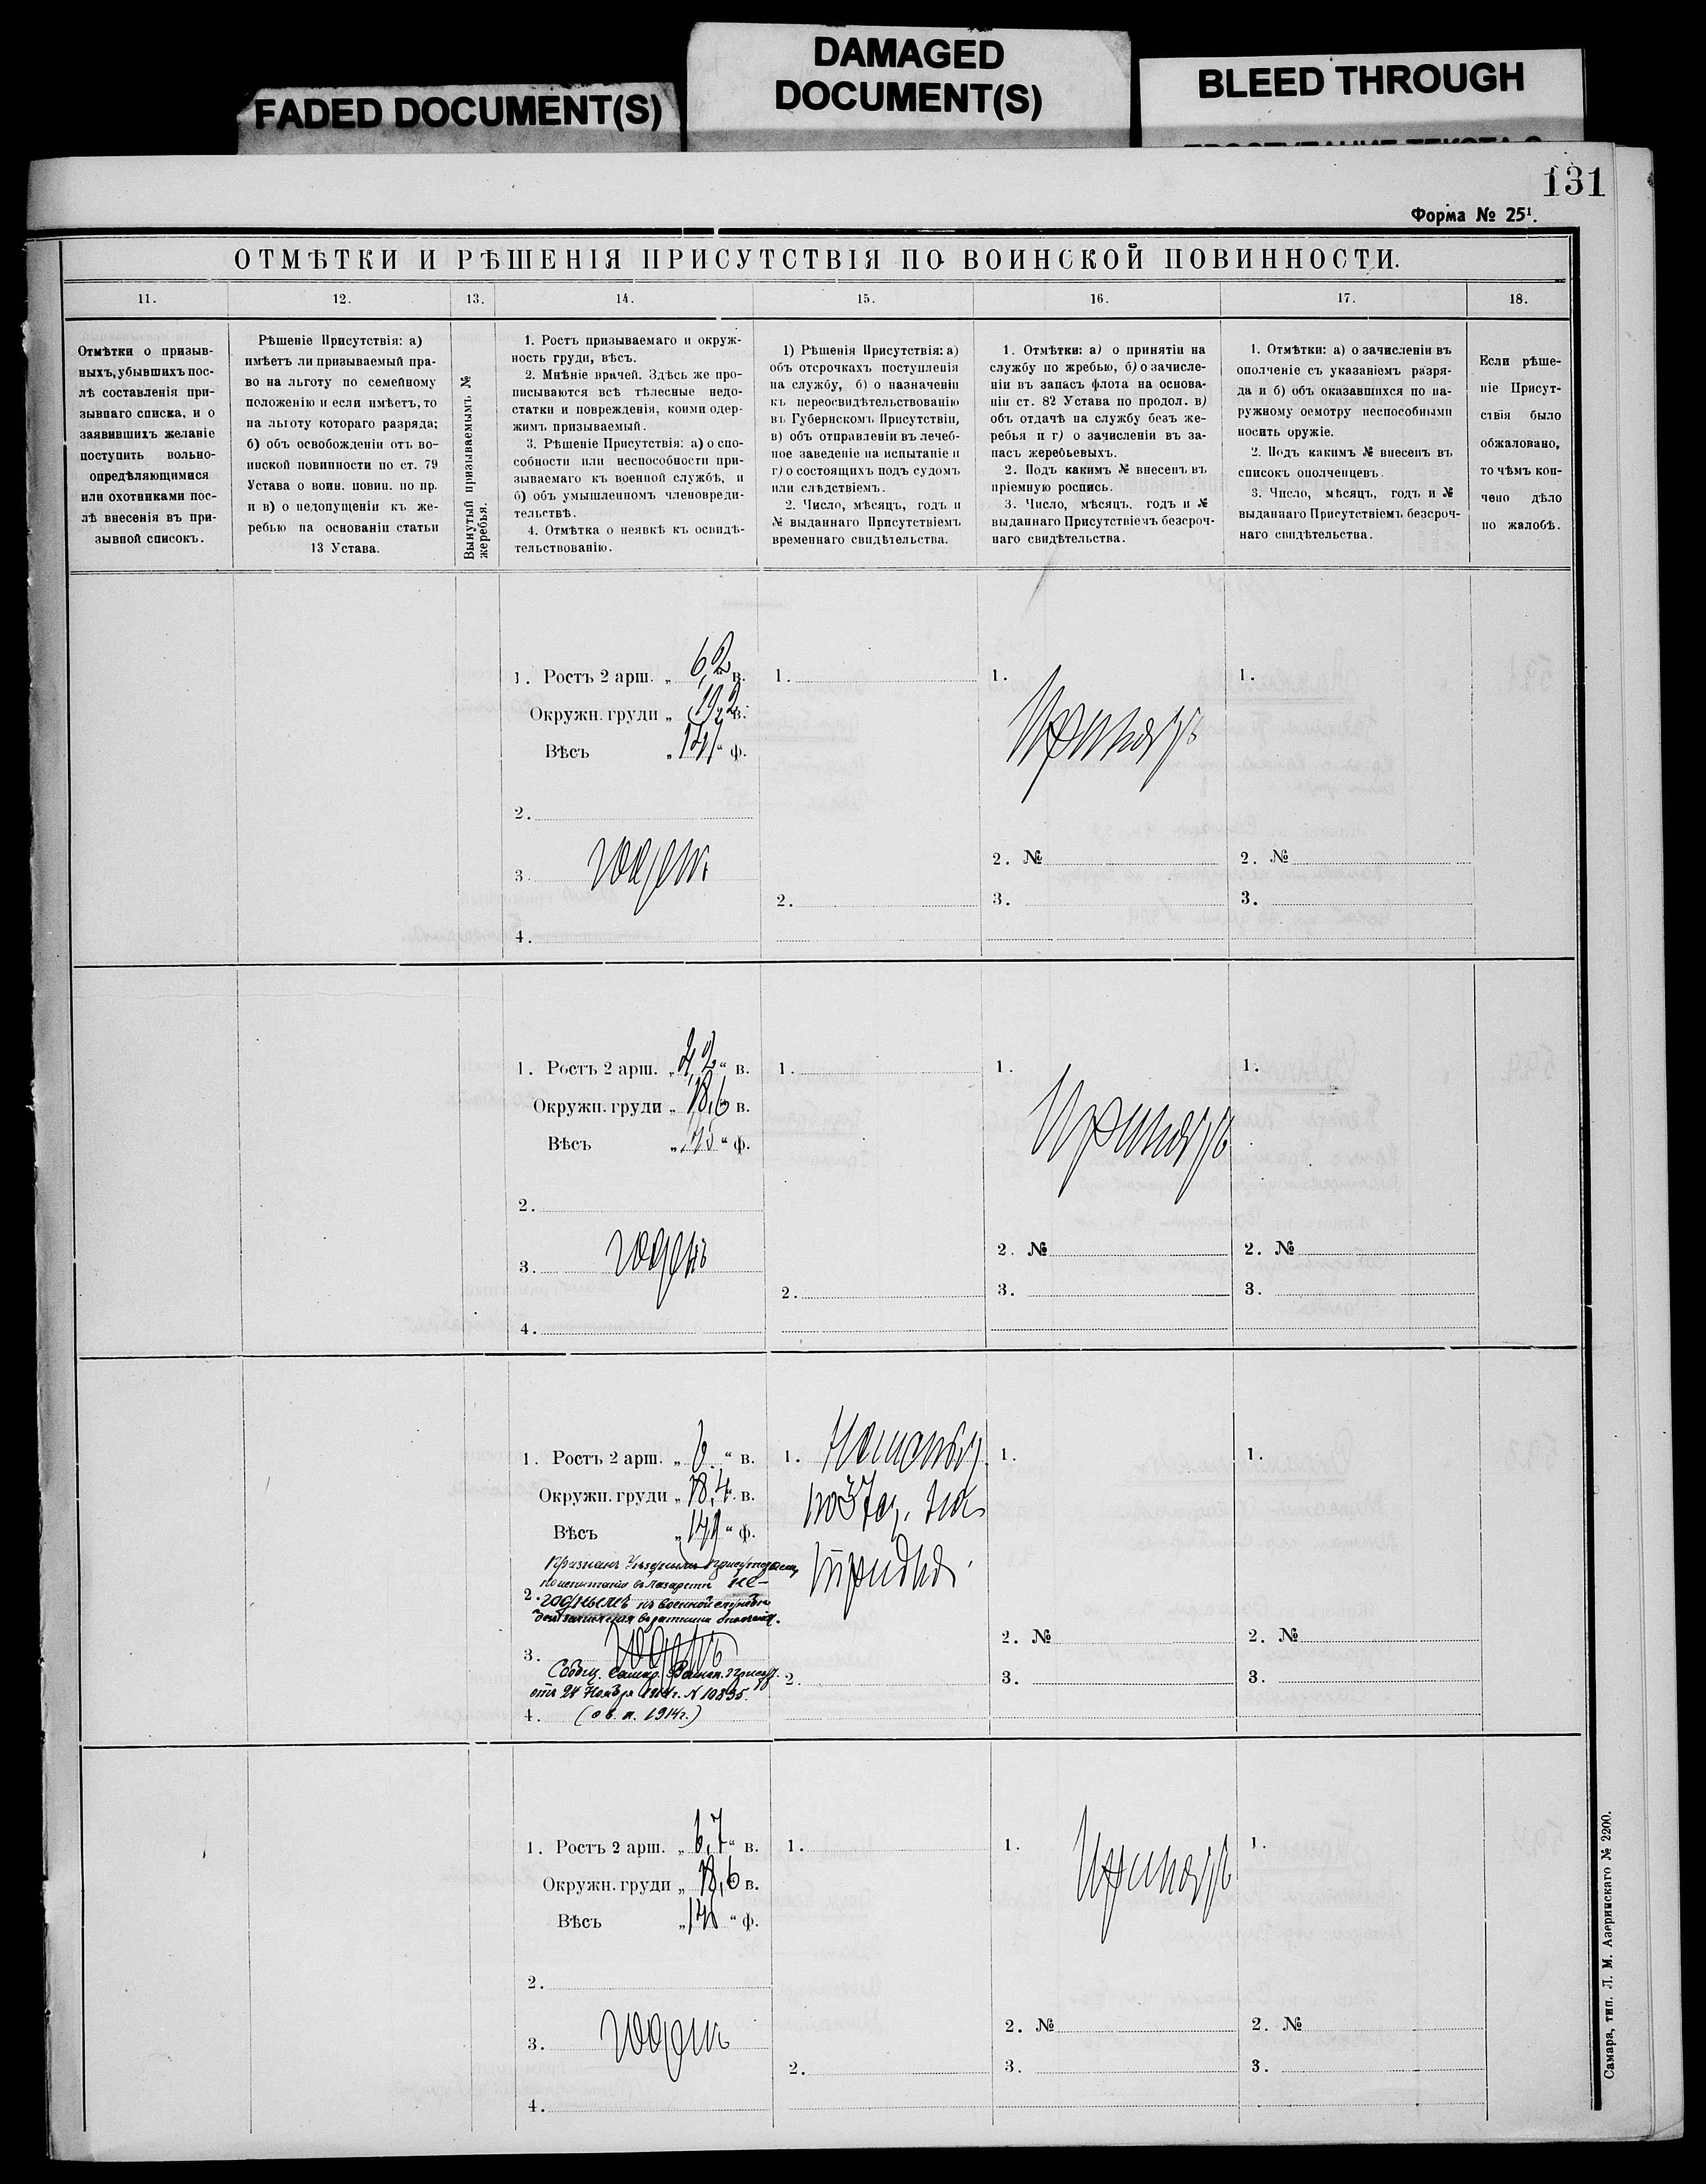 FADED DOCUMENT(S)
DAMAGED
DOCUMENT(S)
BLEED THROUGH
131
Форма № 25¹.
ОТМѢТКИ И РѢШЕНІЯ ПРИСУТСТВІЯ ПО ВОИНСКОЙ ПОВИННОСТИ.
11.
12.
13.
14.
15.
16.
17.
18.
Отмѣтки о призыв-
ныхъ, убывшихъ пос-
лѣ составленія при-
зывнаго списка, и о
заявившихъ желаніе
поступить вольно-
опредѣляющимися
или охотниками пос-
лѣ внесенія въ при-
зывной списокъ.
Рѣшеніе Присутствія: а)
имѣетъ ли призываемый пра-
во на льготу по семейному
положенію и если имѣетъ, то
на льготу котораго разряда;
б) объ освобожденіи отъ во-
инской повинности по ст. 79
Устава о воин. повин. по пр.
и в) о недопущеніи къ же-
ребью на основаніи статьи
13 Устава.
Вынутый призываемымъ №
жеребья.
1. Ростъ призываемаго и окруж-
ность груди, вѣсъ.
2. Мнѣніе врачей. Здѣсь же про-
писываются всѣ тѣлесные недо-
статки и поврежденія, коими одер-
жимъ призываемый.
3. Рѣшеніе Присутствія: а) о спо-
собности или неспособности при-
зываемаго къ военной службѣ, и
б) объ умышленномъ членовреди-
тельствѣ.
4. Отмѣтка о неявкѣ къ освидѣ-
тельствованію.
1) Рѣшенія Присутствія: а)
объ отсрочкахъ поступленія
на службу, б) о назначеніи
къ переосвидѣтельствованію
въ Губернскомъ Присутствіи,
в) объ отправленіи въ лечеб-
ное заведеніе на испытаніе и
г) о состоящихъ подъ судомъ
или слѣдствіемъ.
2. Число, мѣсяцъ, годъ и
№ выданнаго Присутствіемъ
временнаго свидѣтельства.
1. Отмѣтки: а) о принятіи на
службу по жребью, б) о зачисле-
ніи въ запасъ флота на основа-
ніи ст. 82 Устава по продол. в)
объ отдачѣ на службу безъ же-
ребья и г) о зачисленіи въ за-
пасъ жеребьевыхъ.
2. Подъ какимъ № внесенъ въ
пріемную роспись.
3. Число, мѣсяцъ, годъ и №
выданнаго Присутствіемъ безсроч-
наго свидѣтельства.
1. Отмѣтки: а) о зачисленіи въ
ополченіе съ указаніемъ разря-
да и б) объ оказавшихся по на-
ружному осмотру неспособными
носить оружіе.
2. Подъ какимъ № внесенъ въ
списокъ ополченцевъ.
3. Число, мѣсяцъ, годъ и №
выданнаго Присутствіемъ безсроч-
наго свидѣтельства.
Если рѣше-
ніе Присут-
ствія было
обжаловано,
то чѣмъ кон-
чено дѣло
по жалобѣ.
1. Ростъ 2 арш. „ 6,2 в.
Окружн. груди „ 19,2 в.
Вѣсъ „ “ ф.
2.
3. Годенъ
4.
1.
2.
1. Принятъ
2. №
3.
1.
2. №
3.
1. Ростъ 2 арш. „ 4,2 “ в.
Окружн. груди „ 18,6 в.
Вѣсъ „ “ ф.
2.
3. Годенъ
4.
1.
2.
1. Принятъ
2. №
3.
1.
2. №
3.
1. Ростъ 2 арш. „ 6. “ в.
Окружн. груди „ 18,4 в.
Вѣсъ „ 149 “ ф.
Признанъ Уѣзднымъ Присутствіем
по испытаніи въ лазаретѣ не-
2. годнымъ къ военной службѣ
3. Годенъ
Сообщ. Самар. Воинск. Присут.
отъ 24 Ноября 1914 г. № 10895.
4. (о в. п. 1914 г.)
1.
2.
1.
2. №
3.
1.
2. №
3.
1. Ростъ 2 арш. „ 6,7 “ в.
Окружн. груди „ 18,6 в.
Вѣсъ „ “ ф.
2.
3. Годенъ
4.
1.
2.
1. Принятъ
2. №
3.
1.
2. №
3.
Самара, тип. Л. М. Азеринскаго № 2200.